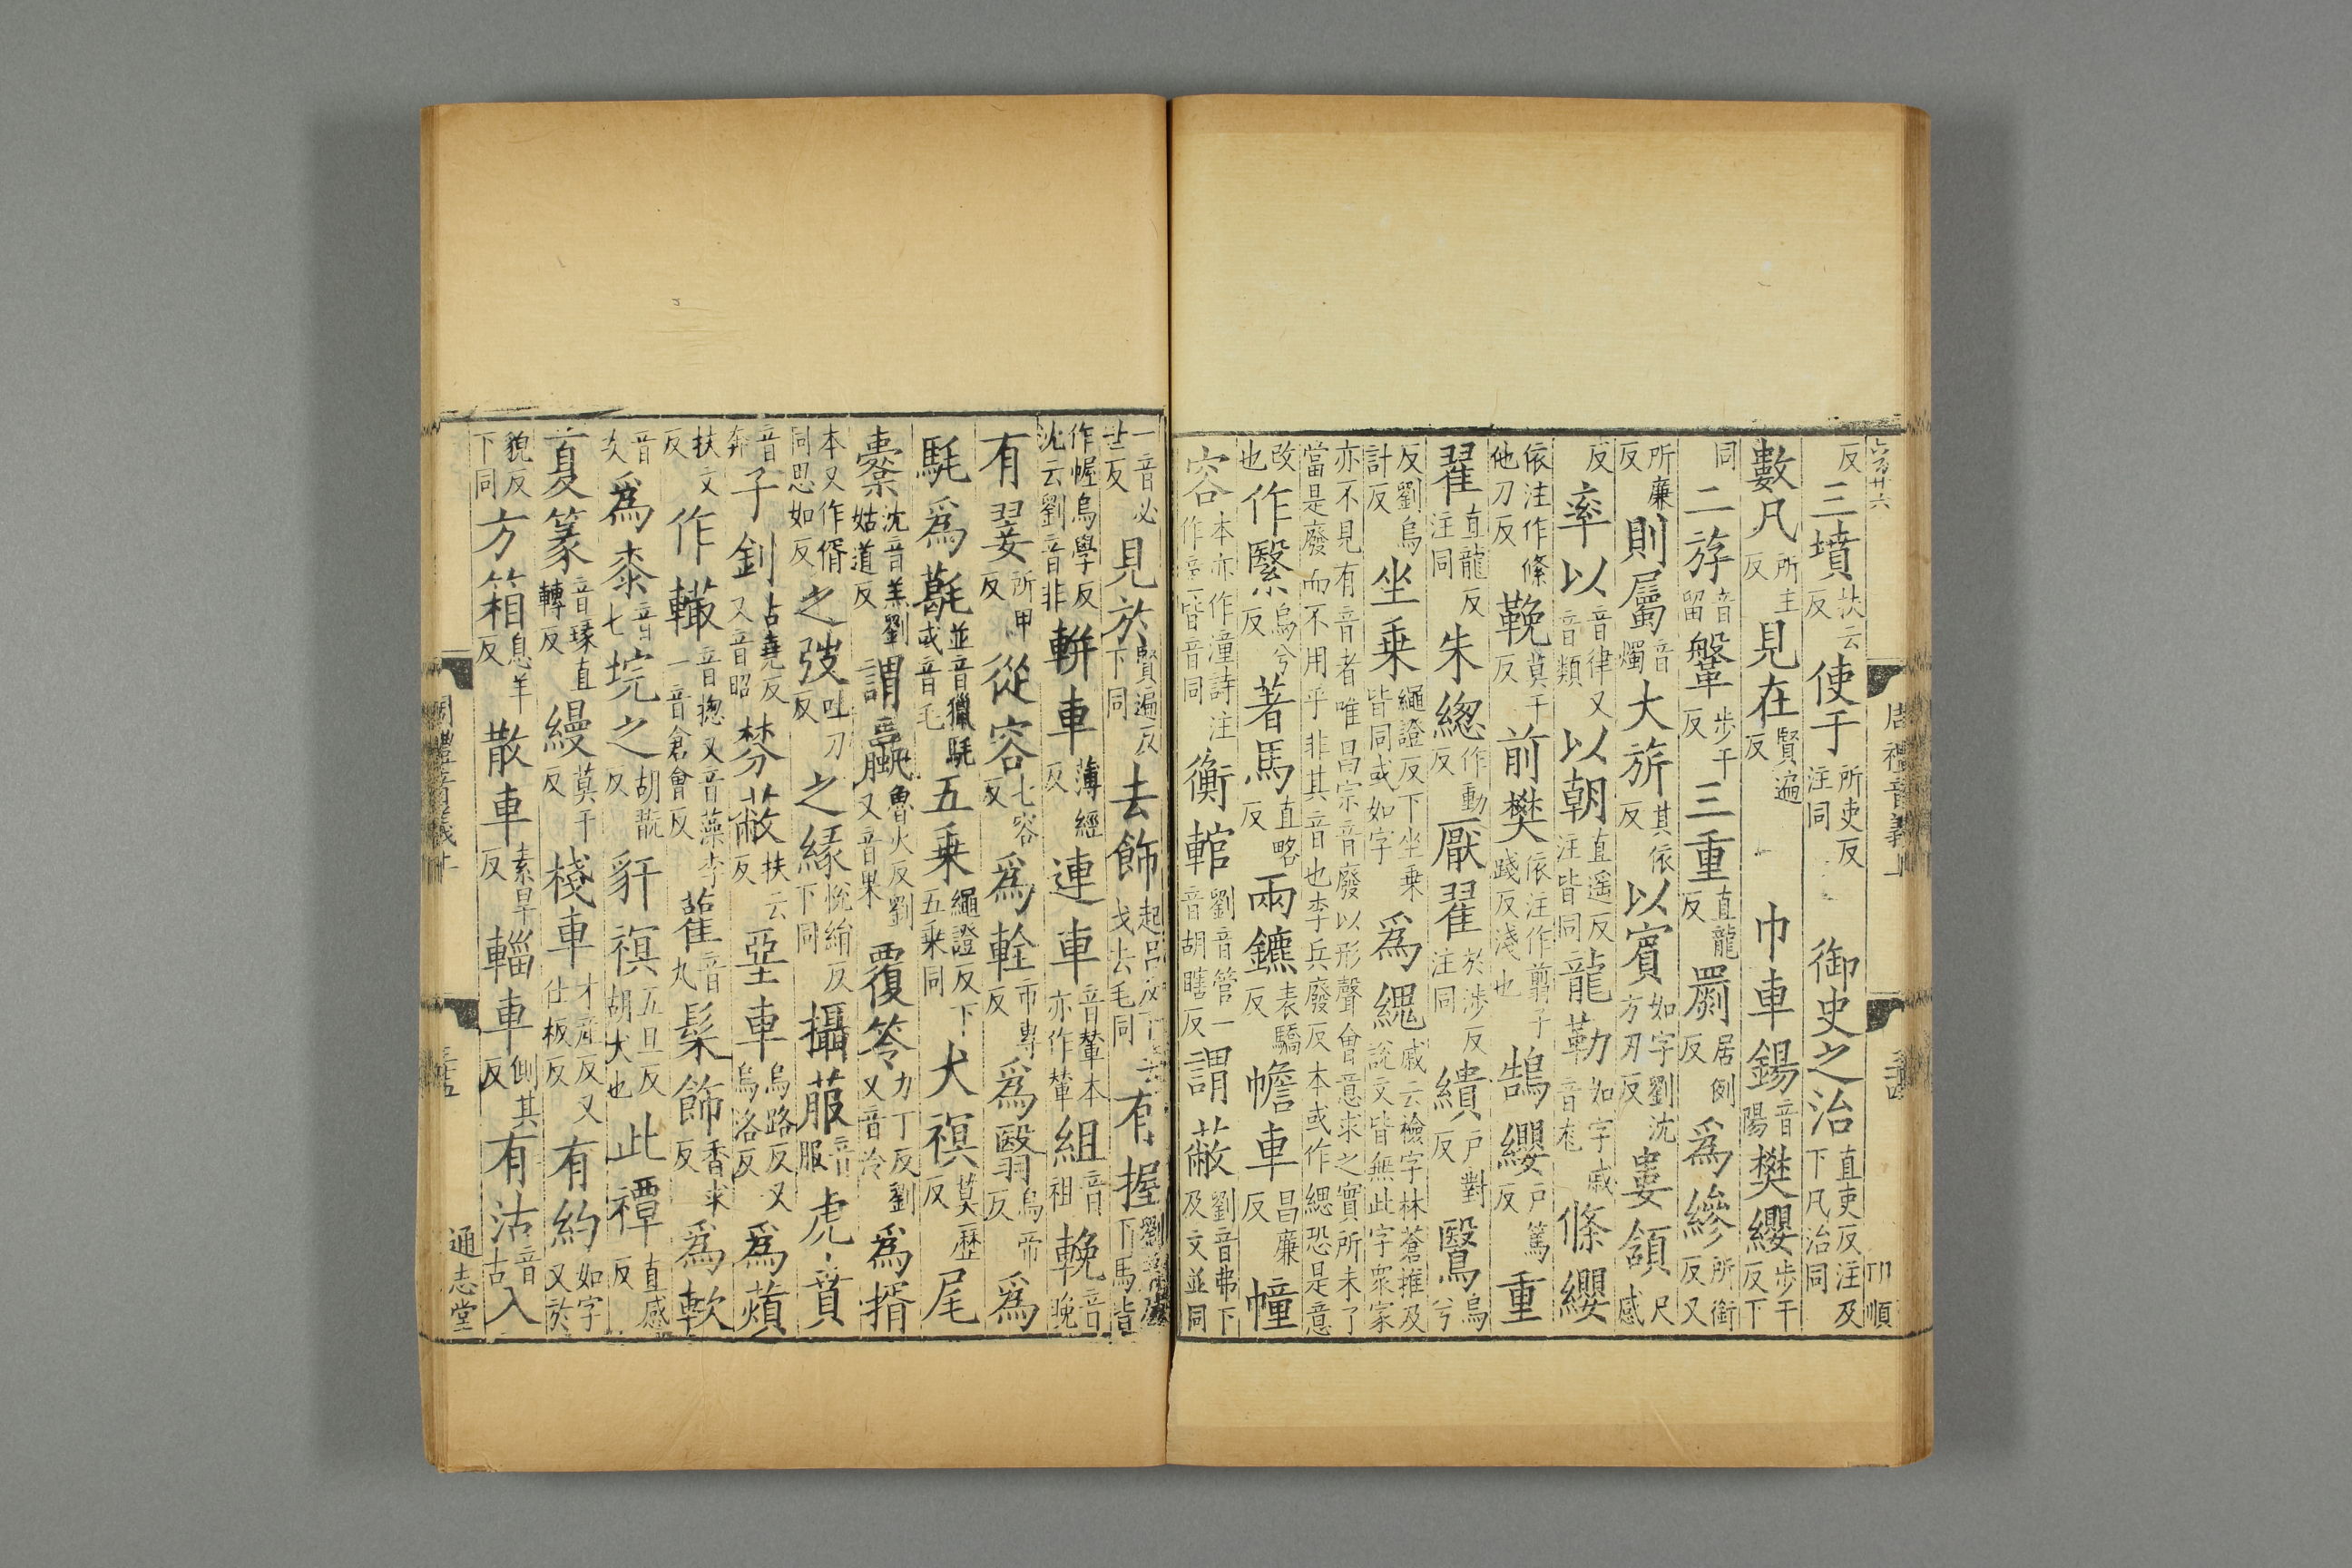 六万廿六
周禮音義上
順
反三墳扶云反使于所吏反注同御史之治直吏反注及下凡治同
數凡所主反見在賢遍反巾車鍚音陽樊纓步干反下
同二斿音留鞶步干反三重直龍反罽居例反為縿所銜反又
所廉反則屬音燭大旂其依反以賓如字劉沈方刃反婁頷尺感
反率以音律又音類以朝直遥反注皆同龍勒如字戚音尨絛纓
依注作絛他刀反鞔莫干反前樊依注作翦子踐反淺也鵠纓戶篤反重
翟直龍反注同朱緫作動反厭翟於涉反注同繢戶對反鷖烏兮
反劉烏計反坐乗繩證反下坐乗皆同或如字為緦戚云檢字林蒼雅及說文皆無此字衆家
亦不見有音者唯昌宗音廢以形聲會意求之實所未了當是廢而不用乎非其音也李兵廢反本或作緦恐是意
改也作繄烏兮反著馬直略反兩鑣表驕反幨車昌廉反幢
容本亦作潼詩注作童皆音同衡輨劉音管一音胡瞎反謂蔽劉音弗下及文並同
一音必世反見於賢遍反下同去飾起呂反下去戈去毛同有握劉下馬皆
作幄烏學反沈云劉音非軿車薄經反連車音輦本亦作輦組音祖輓音晚
有翣所甲反從容七容反為輇市專反為翳烏帝反為
毦為㲯並音獵毦或音毛五乗繩證反下五乗同犬𧜀莫歷反尾
櫜沈音羔劉姑道反謂蠃魯火反劉又音果覆笭力丁反劉又音泠為揟
本又作偦同思如反之弢吐刀反之緣悅絹反下同攝菔音服虎賁
音奔子釗占堯反又音昭棼蔽扶云反堊車烏路反又烏洛反為薠
扶文反作轍音揔又音藻李一音倉會反雚音丸髤飾香求反為軟
音次為桼音七垸之胡翫反豻𧜀五旦反胡犬也此禫直感反
夏篆音瑑直轉反縵莫干反棧車才產反又仕板反有約如字又於
貌反下同方箱息羊反散車素旱反輜車側其反有沽音古入
周禮音義上
通志堂